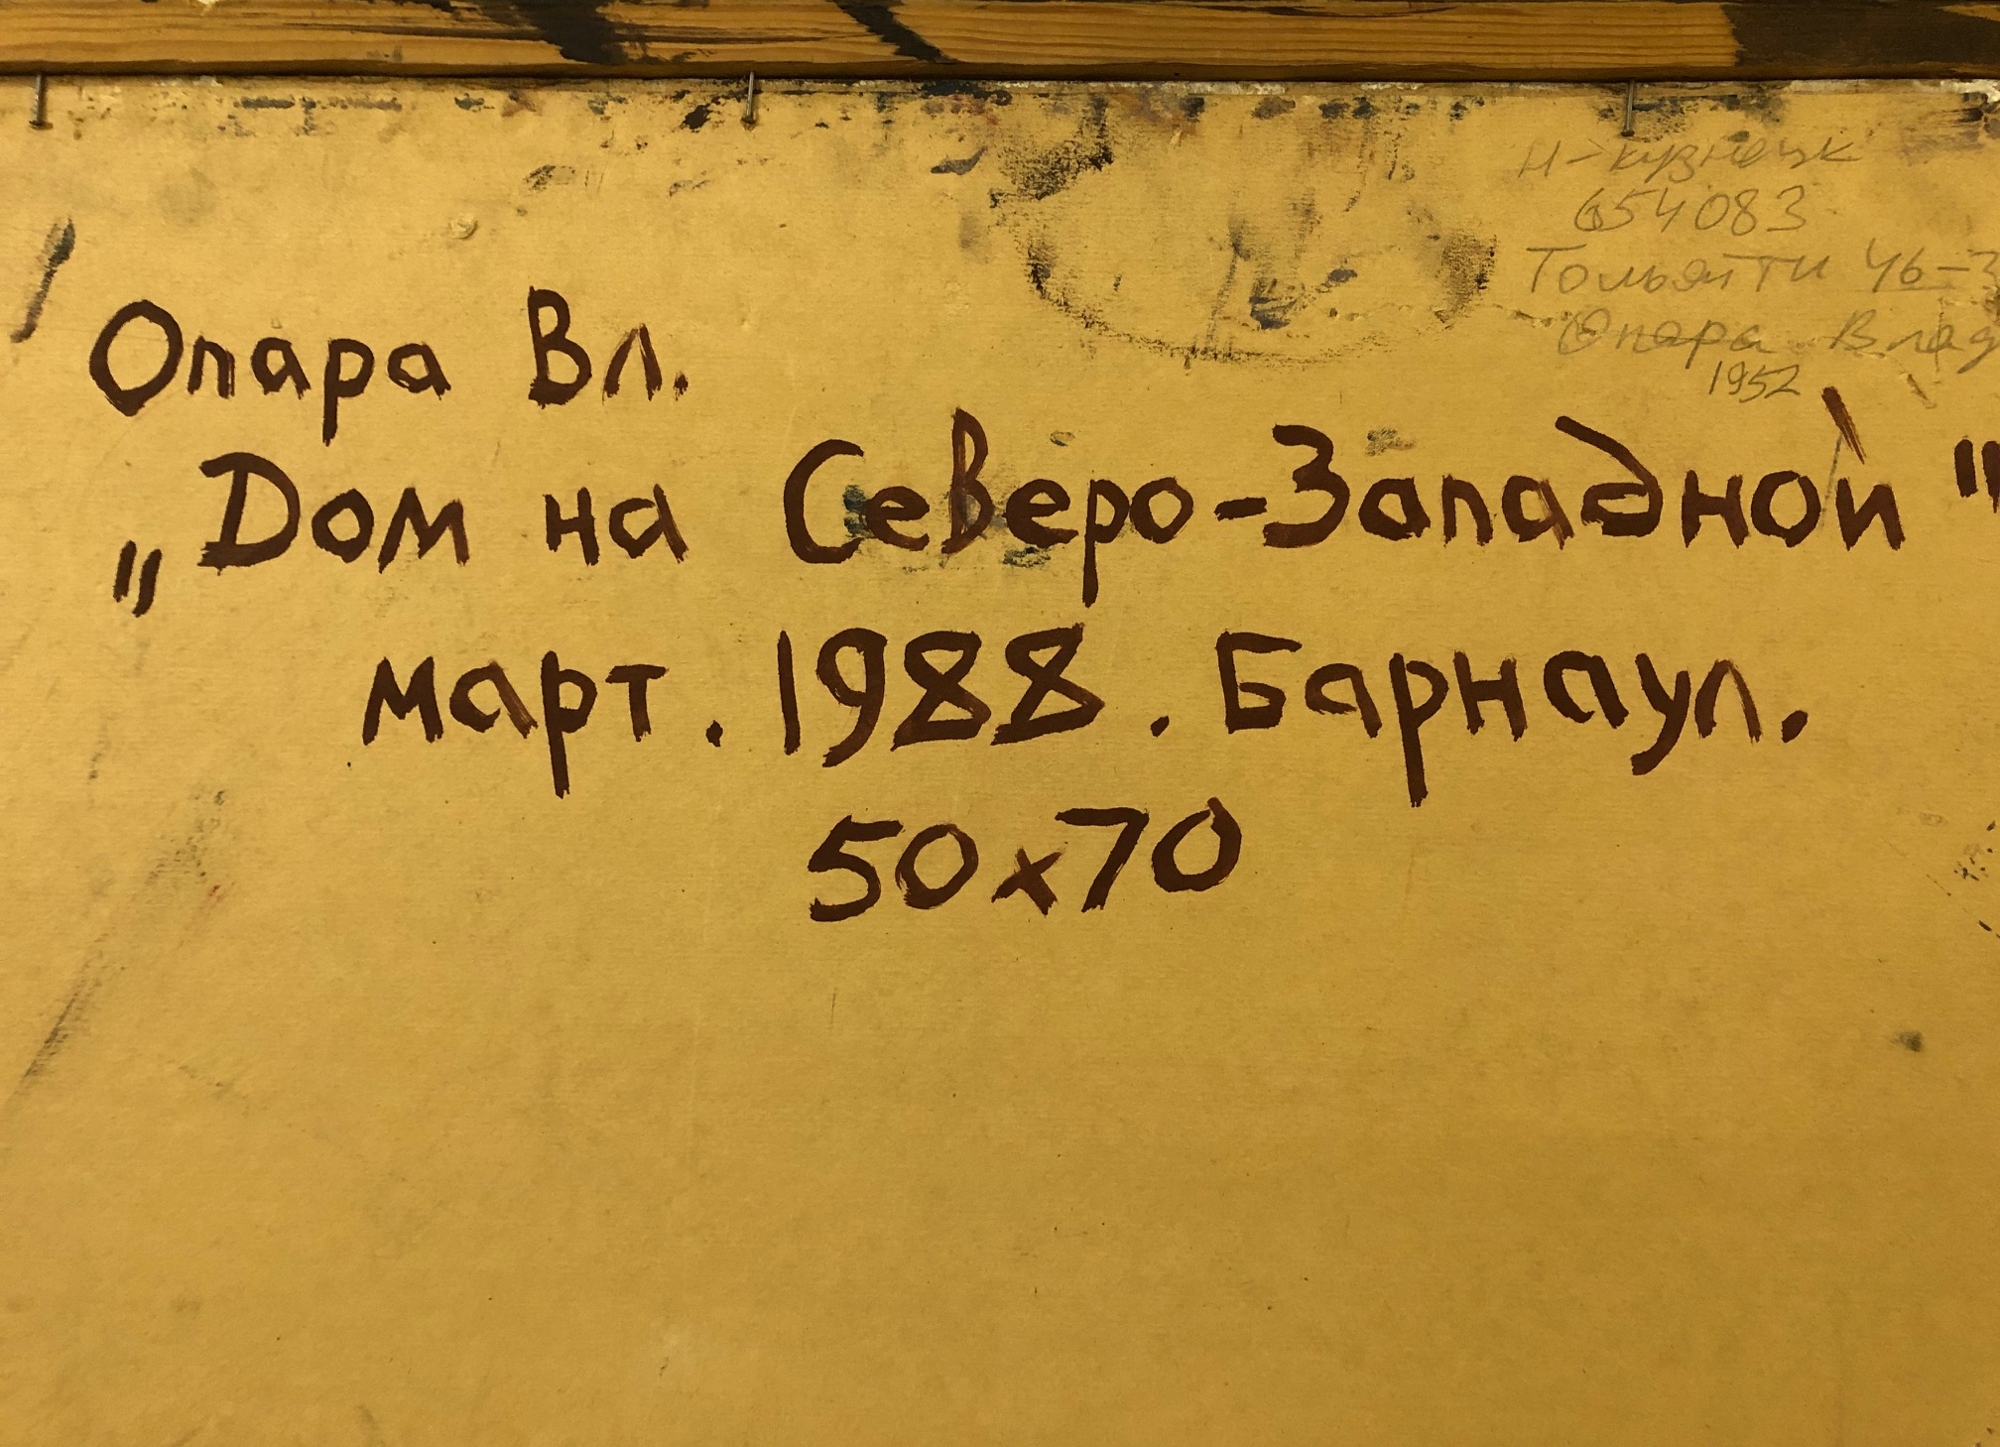 Н-Кузнецк
654083
Тольятти 46-3
Опара Влад
1952
Опара Вл.
„Дом на Северо-Западной"
март. 1988. Барнаул.
50х70